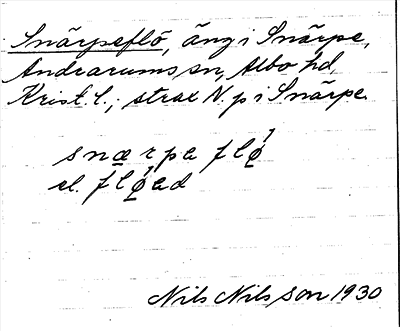 Snärpeflö, äng i Snärpe,
Andrarums sn, Albo hd,
Krist. l.; strax N. p i Snärpe.
snærpa flǿ
el. flǿad
Nils Nilsson 1930